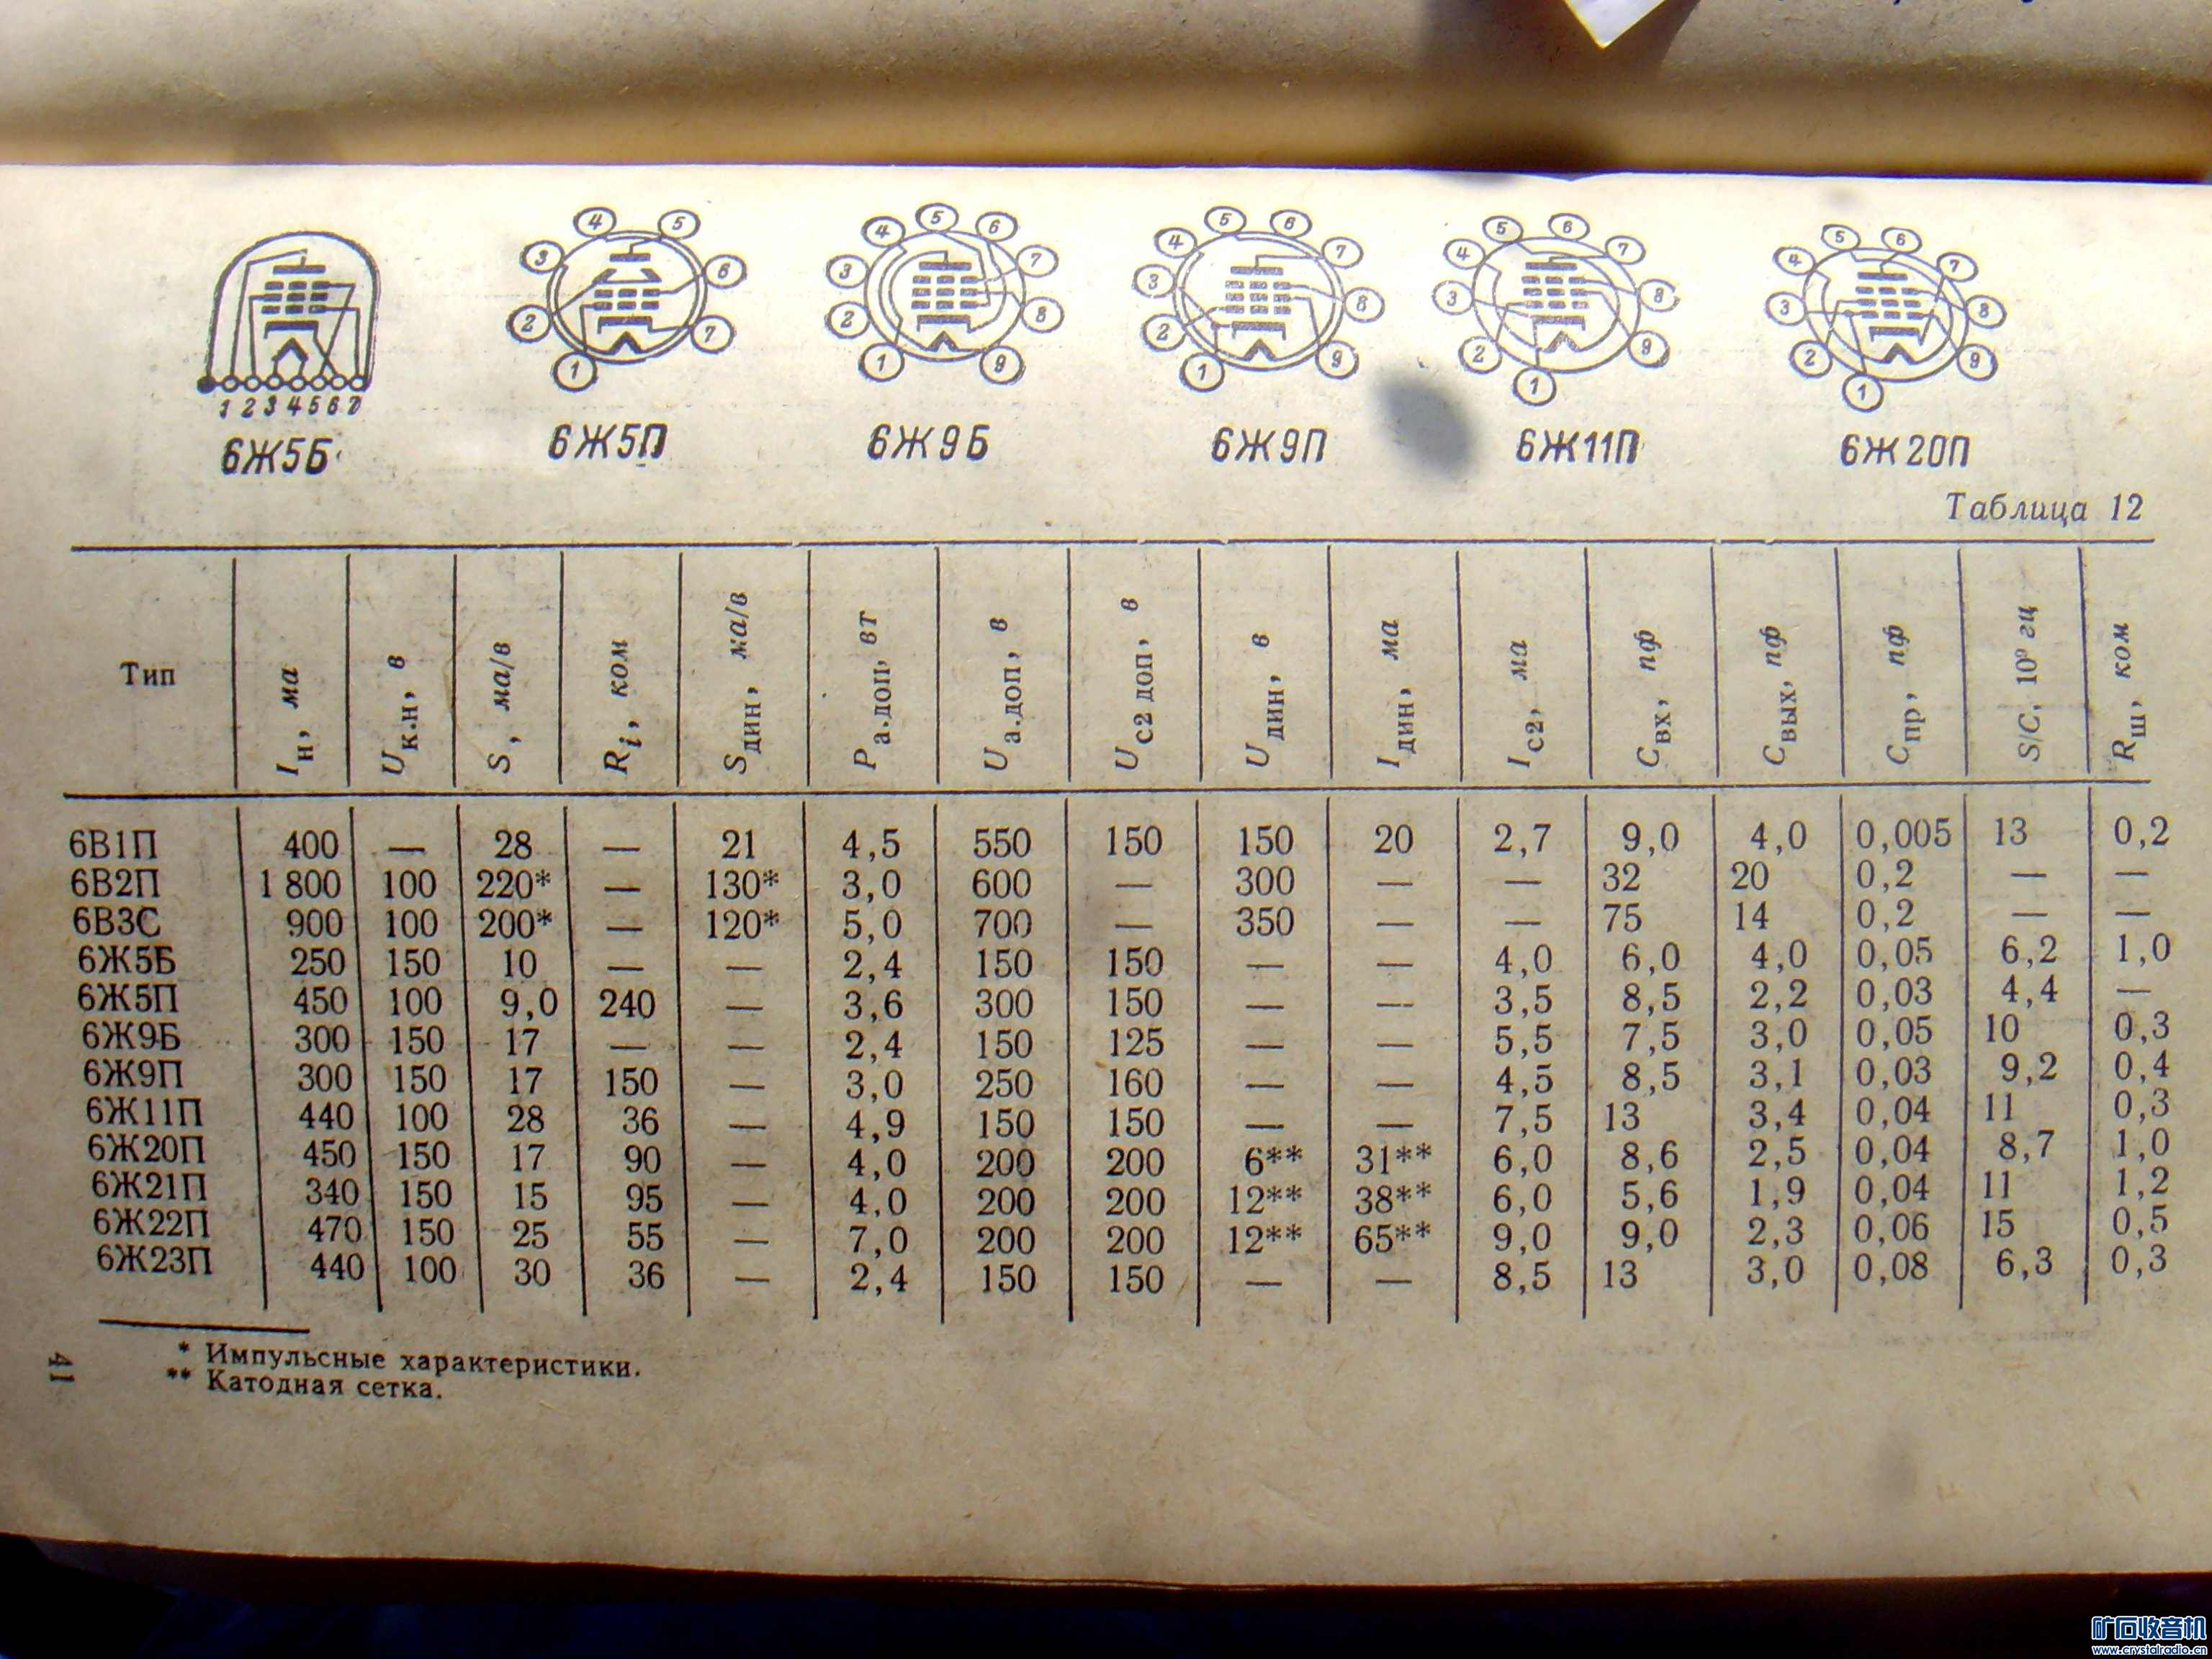 4 5
3 6
2 7
1
5
4 6
3 7
2 8
1 9
5 6
4 7
3 8
2 9
1
5 6
4 7
3 8
2 9
1
5 6
4 7
3 8
2 9
1
1 2 3 4 5 6 7
6Ж5Б 6Ж5П 6Ж9Б 6Ж9П 6Ж11П 6Ж20П
Таблица 12
Тип Iн, ма Uк.н, в S, ма/в Ri, ком Sдин, ма/в Pа.доп, вт Uа.доп, в Uс2 доп, в Uдин, в Iдин, ма Iс2, ма Cвх, пф Cвых, пф Cпр, пф S/C, 10⁹ гц Rш, ком
6В1П 400 — 28 — 21 4,5 550 150 150 20 2,7 9,0 4,0 0,005 13 0,2
6В2П 1 800 100 220* — 130* 3,0 600 — 300 — — 32 20 0,2 — —
6В3С 900 100 200* — 120* 5,0 700 — 350 — — 75 14 0,2 — —
6Ж5Б 250 150 10 — — 2,4 150 150 — — 4,0 6,0 4,0 0,05 6,2 1,0
6Ж5П 450 100 9,0 240 — 3,6 300 150 — — 3,5 8,5 2,2 0,03 4,4 —
6Ж9Б 300 150 17 — — 2,4 150 125 — — 5,5 7,5 3,0 0,05 10 0,3
6Ж9П 300 150 17 150 — 3,0 250 160 — — 4,5 8,5 3,1 0,03 9,2 0,4
6Ж11П 440 100 28 36 — 4,9 150 150 — — 7,5 13 3,4 0,04 11 0,3
6Ж20П 450 150 17 90 — 4,0 200 200 6** 31** 6,0 8,6 2,5 0,04 8,7 1,0
6Ж21П 340 150 15 95 — 4,0 200 200 12** 38** 6,0 5,6 1,9 0,04 11 1,2
6Ж22П 470 150 25 55 — 7,0 200 200 12** 65** 9,0 9,0 2,3 0,06 15 0,5
6Ж23П 440 100 30 36 — 2,4 150 150 — — 8,5 13 3,0 0,08 6,3 0,3
* Импульсные характеристики.
** Катодная сетка.
41
矿石收音机
www.crystalradio.cn